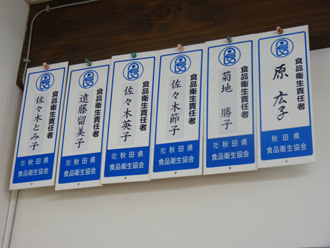 食品衛生責任者
原 広子
秋田県
食品衛生協会
食品衛生責任者
菊地 勝子
㈳秋田県
食品衛生協会
食品衛生責任者
佐々木節子
㈳秋田県
食品衛生協会
食品衛生責任者
佐々木英子
㈳秋田県
食品衛生協会
食品衛生責任者
遠藤留美子
㈳秋田県
食品衛生協会
食品衛生責任者
佐々木とみ子
㈳秋田県
食品衛生協会